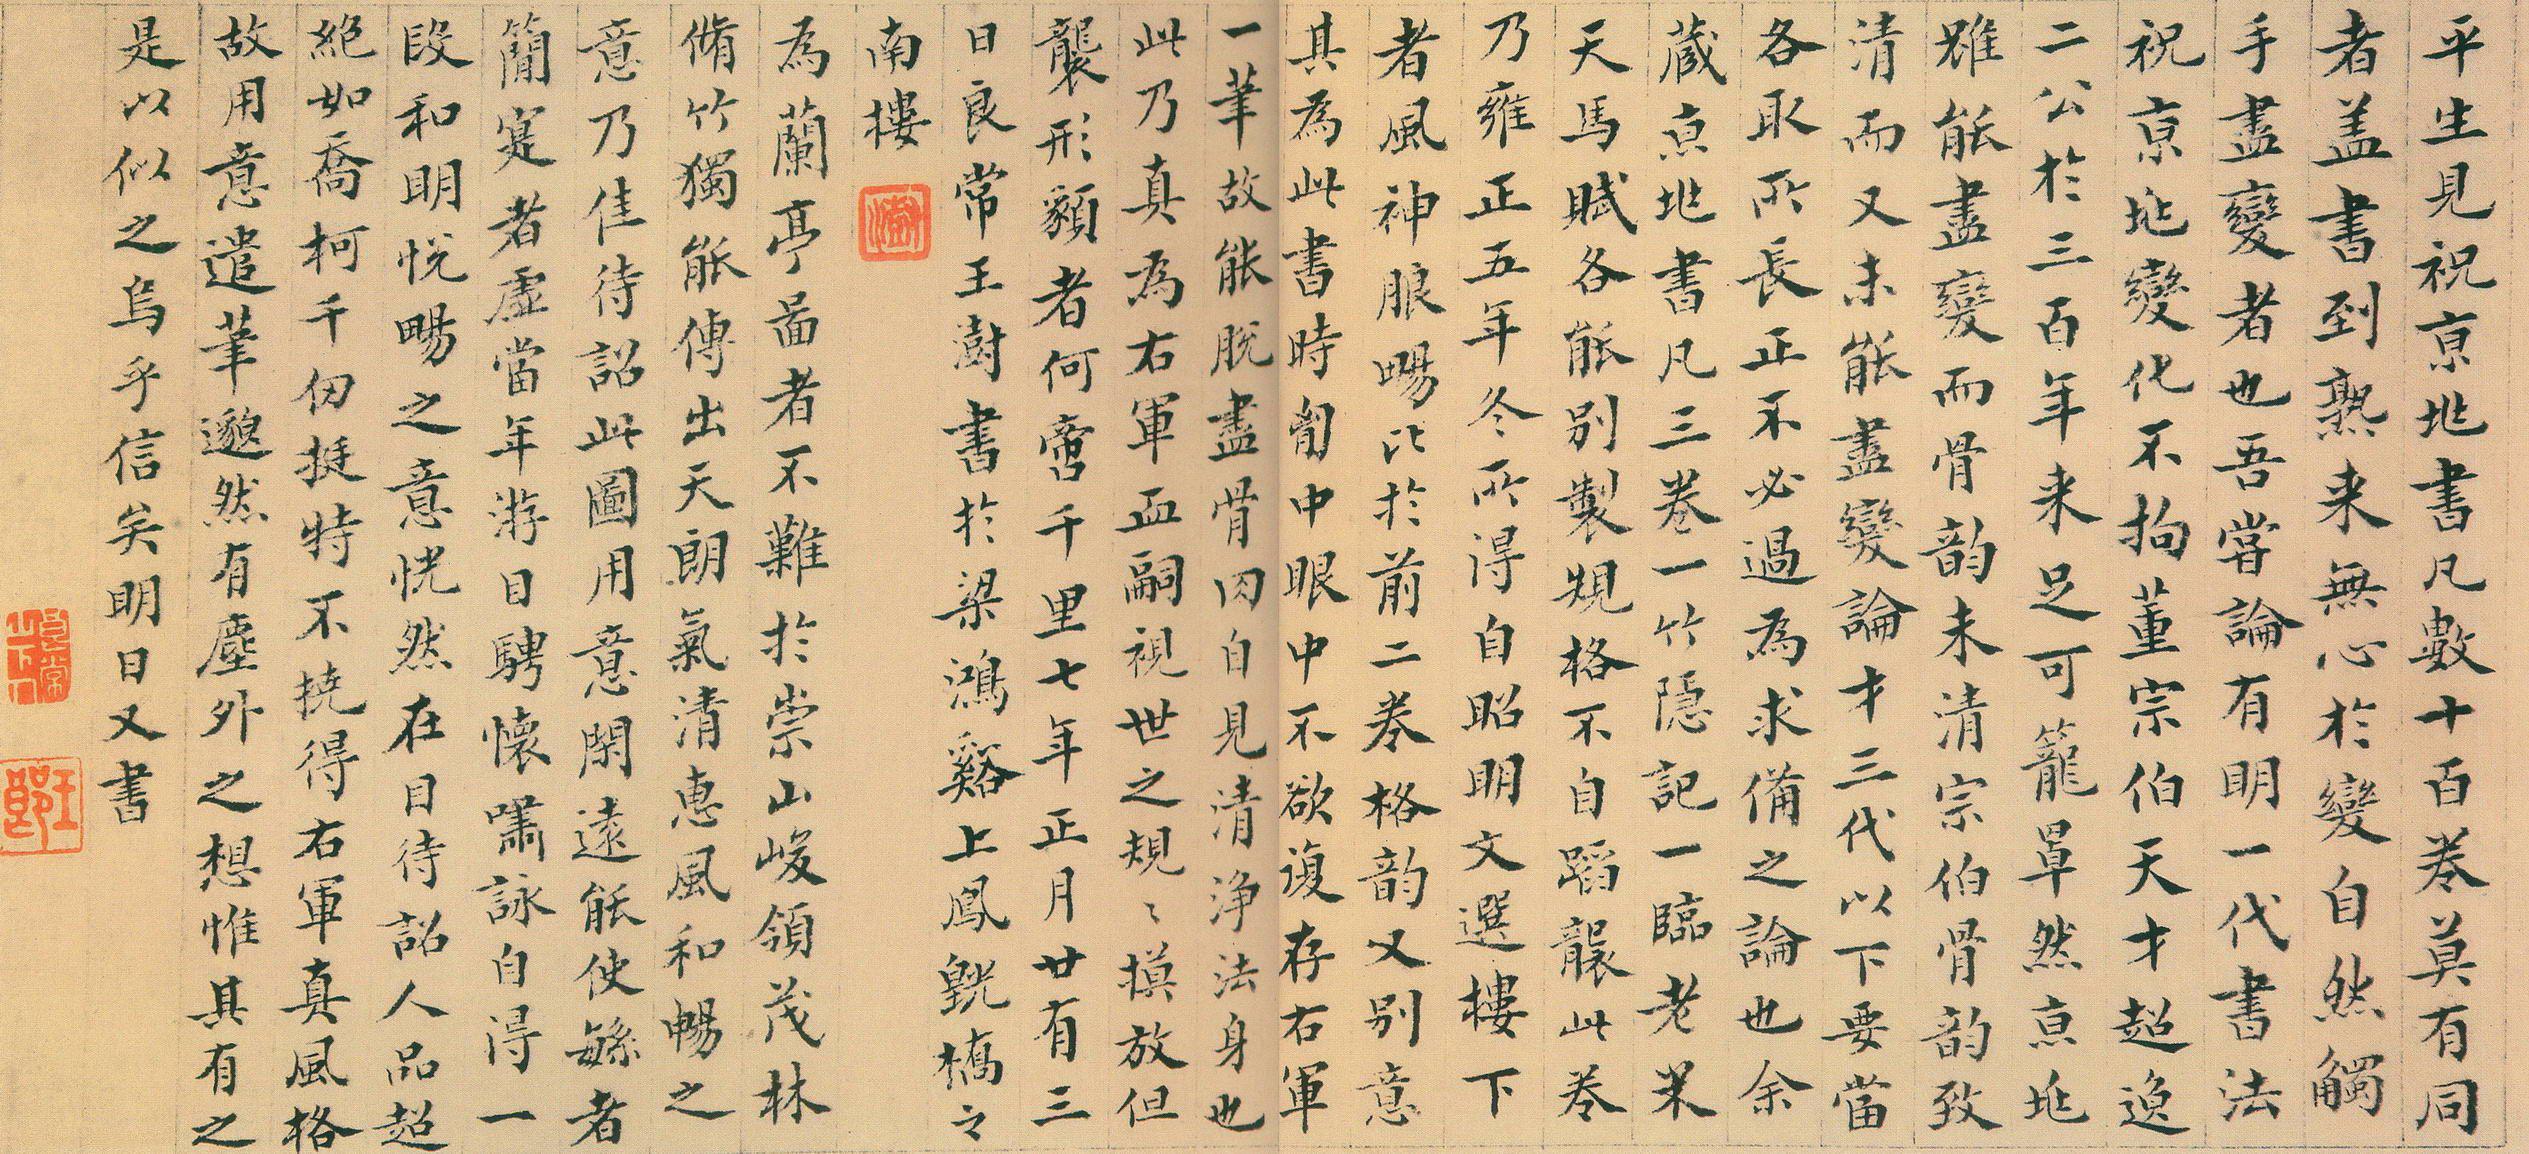 平生見祝京兆書凡數十百卷莫有同
者盖書到熟来無心於變自然觸
手盡變者也吾嘗論有明一代書法
祝京兆變化不拘董宗伯天才超逸
二公於三百年来足可籠罩然京兆
雖能盡變而骨韵未清宗伯骨韵致
清而又未能盡變論才三代以下要當
各取所長正不必過為求備之論也余
藏京兆書凡三卷一竹隱記一臨老米
天馬賦各能別製規格不自蹈襲此卷
乃雍正五年冬所得自昭明文選樓下
者風神脹暢比於前二卷格韵又别意
其為此書時胷中眼中不欲復存右軍
一筆故能脫盡骨肉自見清浄法身也
此乃真為右軍血嗣視世之規〻摸放但
襲形顙者何啻千里七年正月廿有三
日良常王澍書於梁鴻谿上鳳氍橋之
南樓
澍
為蘭亭圖者不難於崇山峻領茂林
脩竹獨能傳出天朗氣清惠風和暢之
意乃佳待詔此圖用意閑遠能使繇者
簡寔者虛當年游目騁懷嘯詠自得一
段和明悅暢之意恍然在目待詔人品超
絕如喬柯千仞挺特不撓得右軍真風格
故用意遣筆邈然有塵外之想惟其有之
是以似之烏乎信矣明日又書